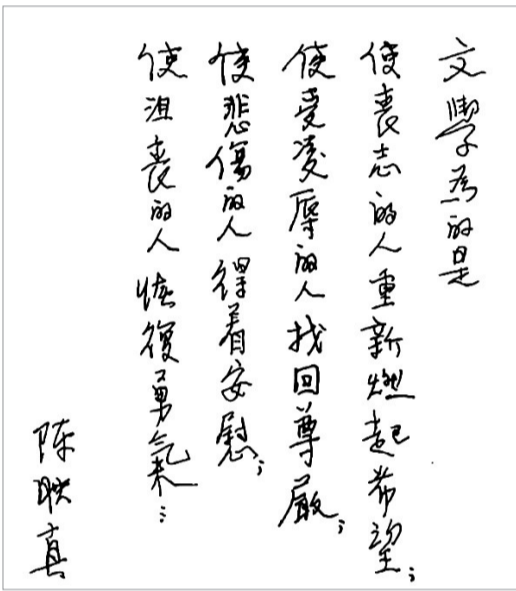 文學為的是
使喪志的人重新燃起希望；
使受凌辱的人找回尊嚴；
使悲傷的人得着安慰；
使沮喪的人恢復勇氣來…
陈映真